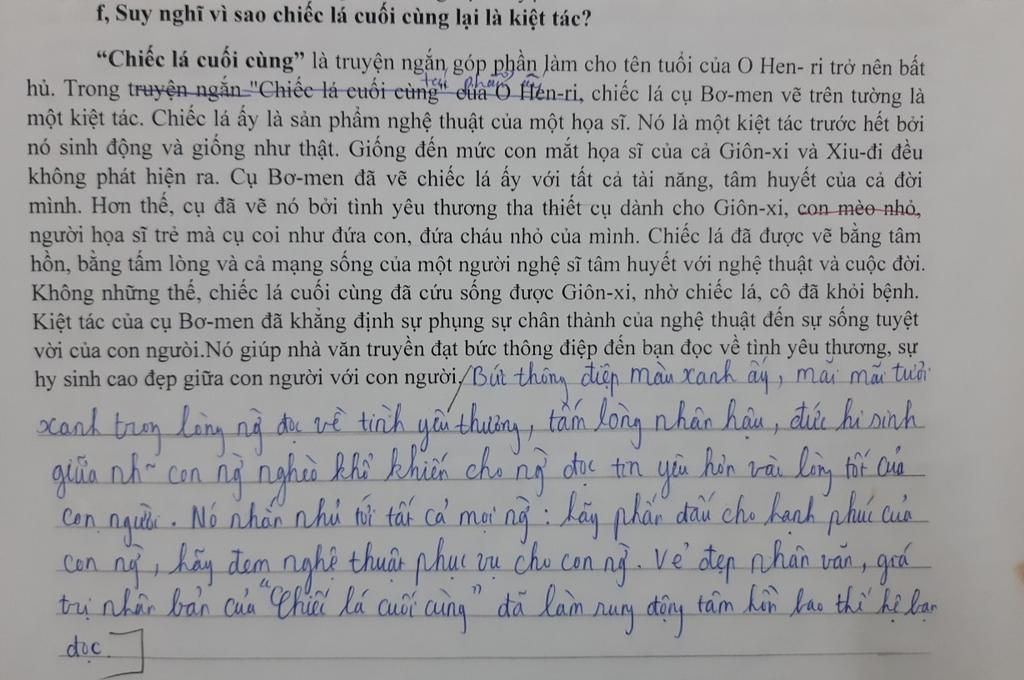 f, Suy nghĩ vì sao chiếc lá cuối cùng lại là kiệt tác?
“Chiếc lá cuối cùng” là truyện ngắn góp phần làm cho tên tuổi của O Hen- ri trở nên bất
hủ. Trong truyện ngắn "Chiếc lá cuối cùng" của O Hen-ri, chiếc lá cụ Bơ-men vẽ trên tường là
một kiệt tác. Chiếc lá ấy là sản phẩm nghệ thuật của một họa sĩ. Nó là một kiệt tác trước hết bởi
nó sinh động và giống như thật. Giống đến mức con mắt họa sĩ của cả Giôn-xi và Xiu-đi đều
không phát hiện ra. Cụ Bơ-men đã vẽ chiếc lá ấy với tất cả tài năng, tâm huyết của cả đời
mình. Hơn thế, cụ đã vẽ nó bởi tình yêu thương tha thiết cụ dành cho Giôn-xi, con mèo nhỏ,
người họa sĩ trẻ mà cụ coi như đứa con, đứa cháu nhỏ của mình. Chiếc lá đã được vẽ bằng tâm
hồn, bằng tấm lòng và cả mạng sống của một người nghệ sĩ tâm huyết với nghệ thuật và cuộc đời.
Không những thế, chiếc lá cuối cùng đã cứu sống được Giôn-xi, nhờ chiếc lá, cô đã khỏi bệnh.
Kiệt tác của cụ Bơ-men đã khẳng định sự phụng sự chân thành của nghệ thuật đến sự sống tuyệt
vời của con người.Nó giúp nhà văn truyền đạt bức thông điệp đến bạn đọc về tình yêu thương, sự
hy sinh cao đẹp giữa con người với con người. Bức thông điệp màu xanh ấy, mãi mãi tươi
xanh trong lòng ng` đọc về tình yêu thương, tấm lòng nhân hậu, đức hi sinh
giữa nh~ con ng` nghèo khổ khiến cho ng` đọc tin yêu hơn vài lòng tốt của
con người. Nó nhắn nhủ tới tất cả mọi ng`: hãy phấn đấu cho hạnh phúc của
con ng`, hãy đem nghệ thuật phục vụ cho con ng`. Vẻ đẹp nhân văn, giá
trị nhân bản của “Chiếc lá cuối cùng” đã làm rung động tâm hồn bao thế hệ bạn
đọc.